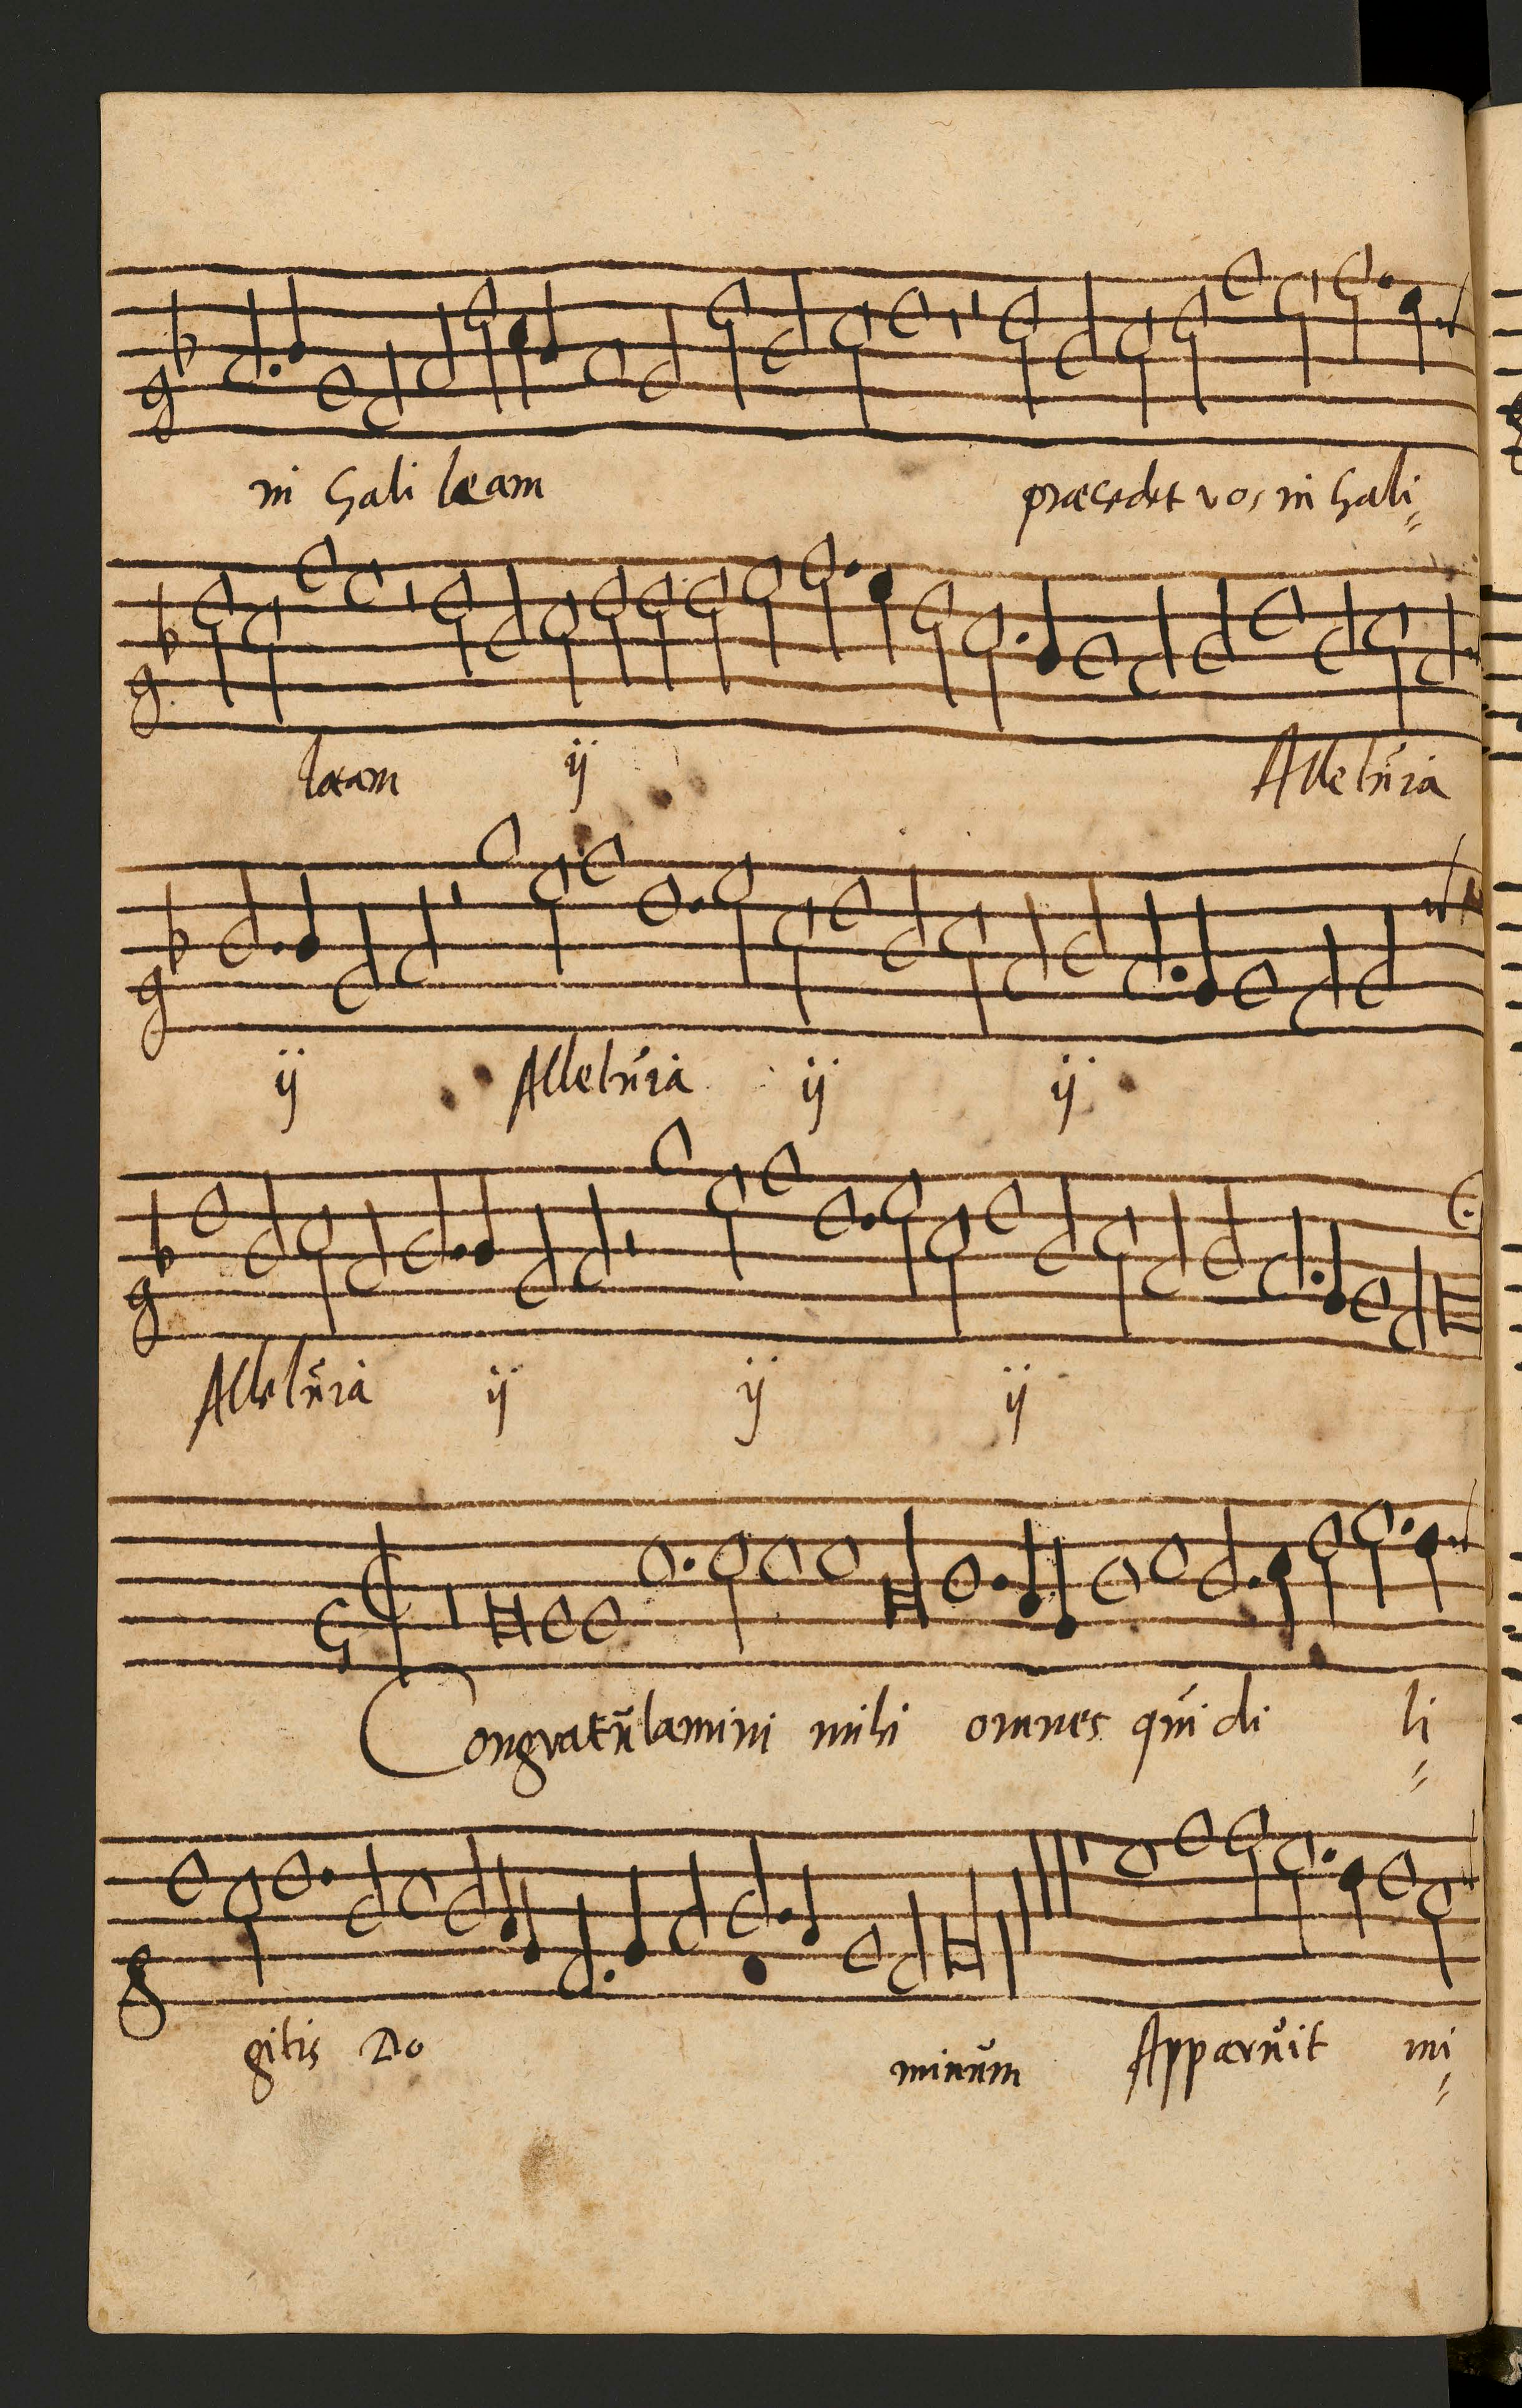 in Galileam præcedet vos in Gali=
læam ij Alleluia
ij Alleluia ij ij
Alleluia ij ij ij
Congratulamini mihi omnes qui di li=
gitis Do minum Apparuit mi=